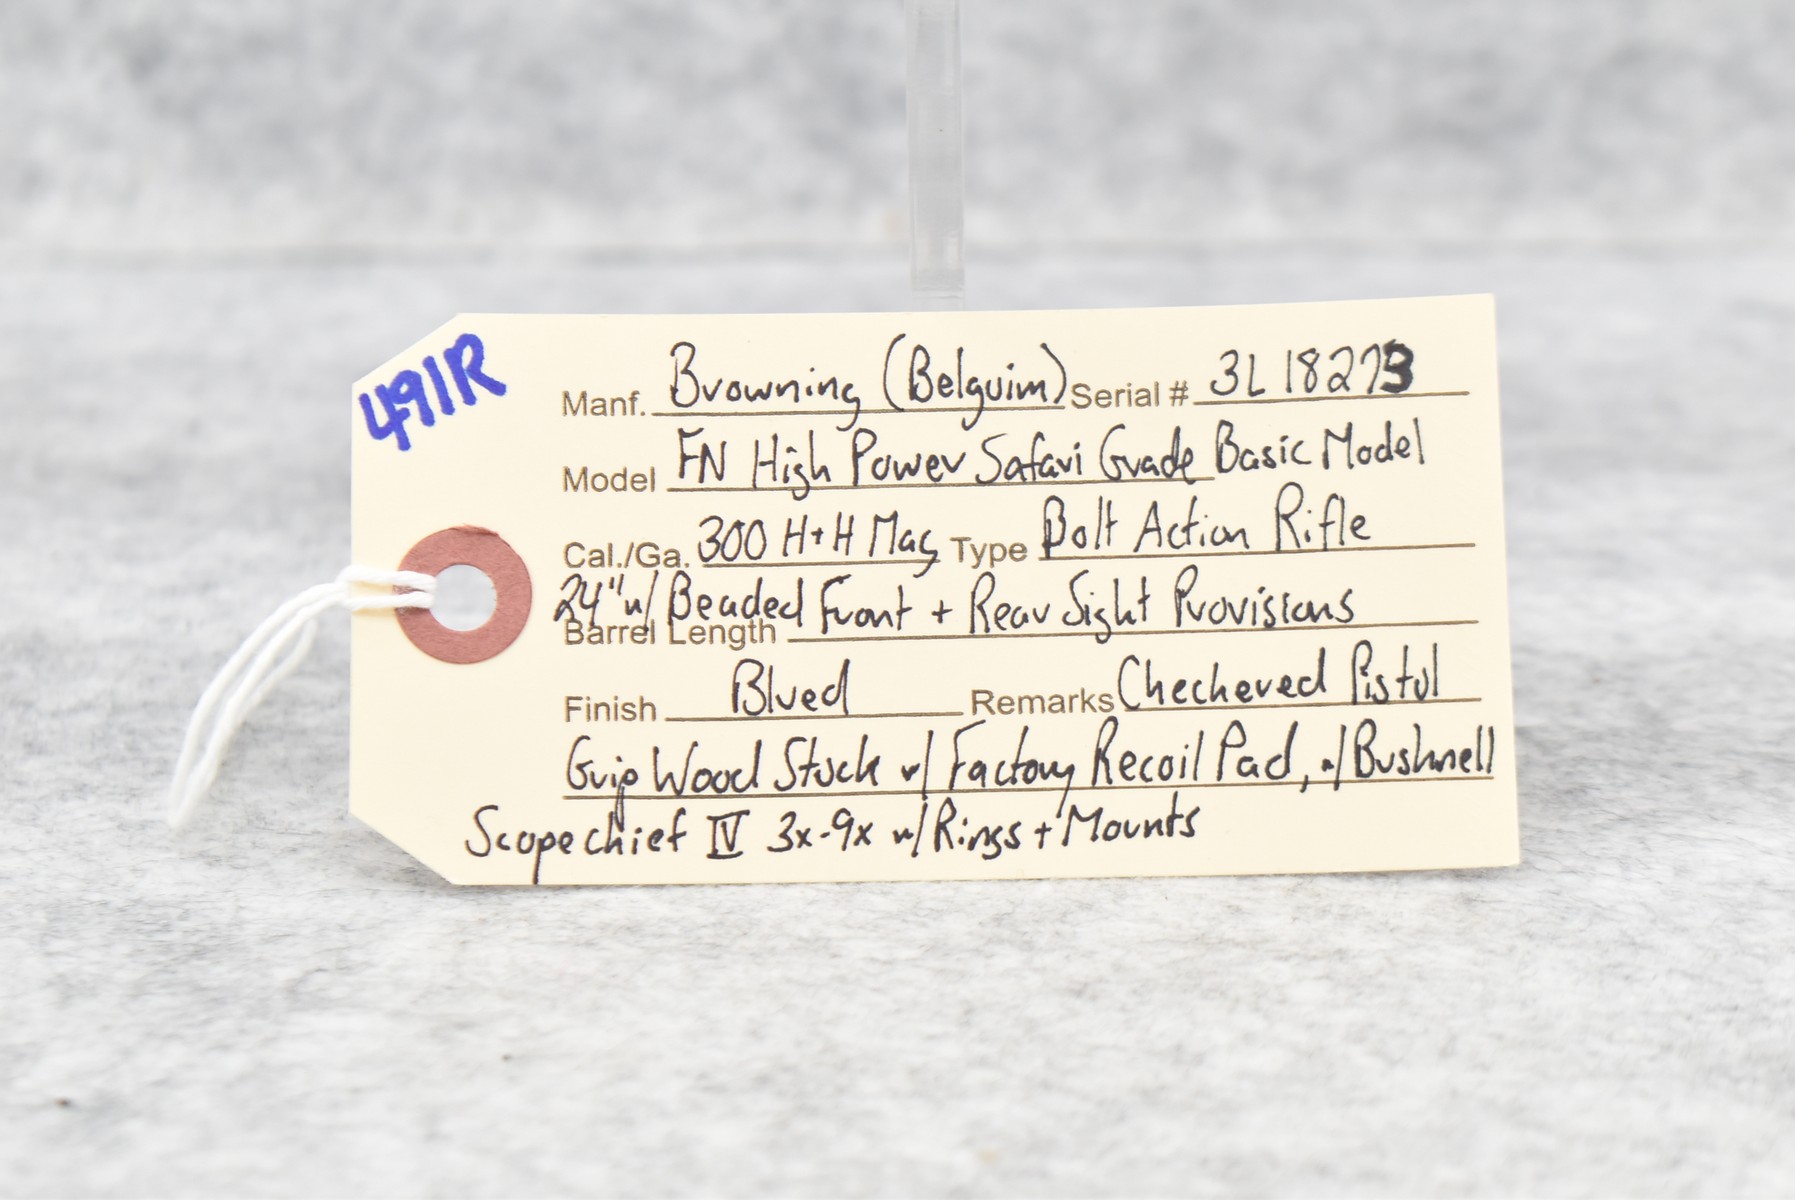 491R
Manf. Browning (Belguim) Serial # 3L18273
Model FN High Power Safari Grade Basic Model
Cal./Ga. 300 H+H Mag Type Bolt Action Rifle
24" w/ Beaded Front + Rear Sight Provisions
Barrel Length
Finish Blued Remarks Checkered Pistol
Grip Wood Stock w/ Factory Recoil Pad, w/ Bushnell
Scopechief IV 3x-9x w/ Rings + Mounts